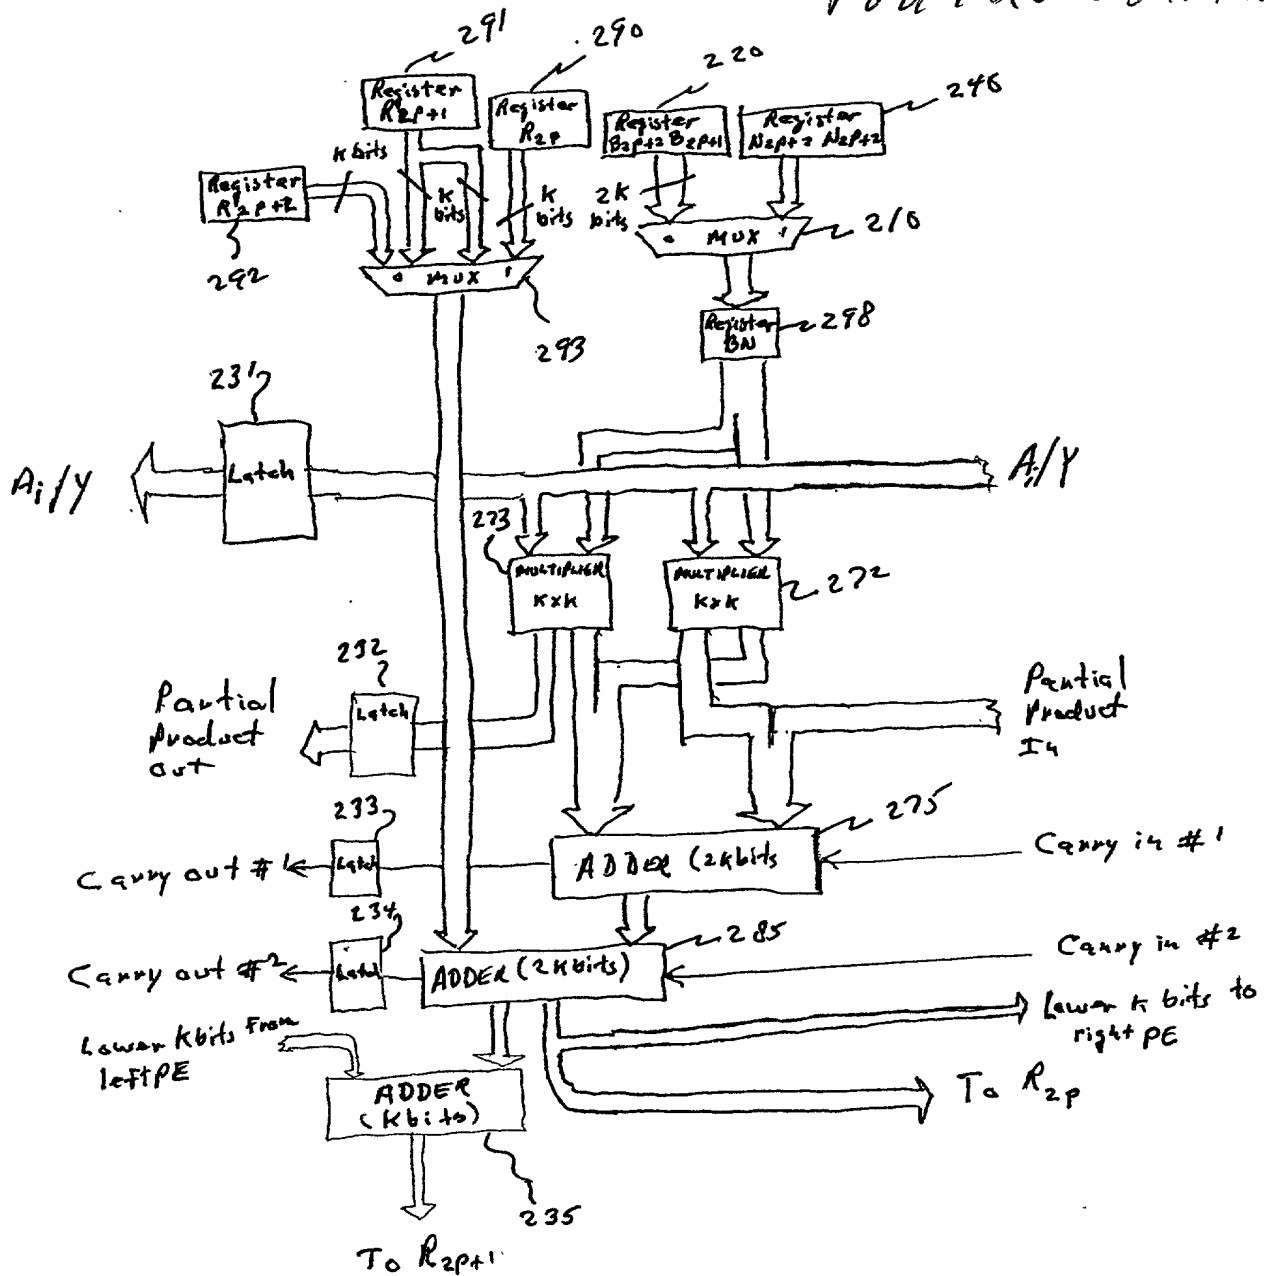 291
290
220
246
Register
R2p+1
Register
R2p
Register
B2p+2 B2p+1
Register
N2p+2 N2p+2
K bits
Register
R2p+2
K
bits
K
bits
2K
bits
292
0 MUX 1
293
0 MUX 1
210
Register
BN
298
231
Latch
Ai/Y
Ai/Y
273
MULTIPLIER
K x K
MULTIPLIER
K x K
272
232
Latch
Partial
Product
out
Partial
Product
In
233
275
Carry out #1
Latch
ADDER (2K bits
Carry in #1
234
285
Carry out #2
Latch
ADDER (2K bits)
Carry in #2
Lower K bits From
left PE
Lower K bits to
right PE
To R2p
ADDER
(K bits)
235
To R2p+1